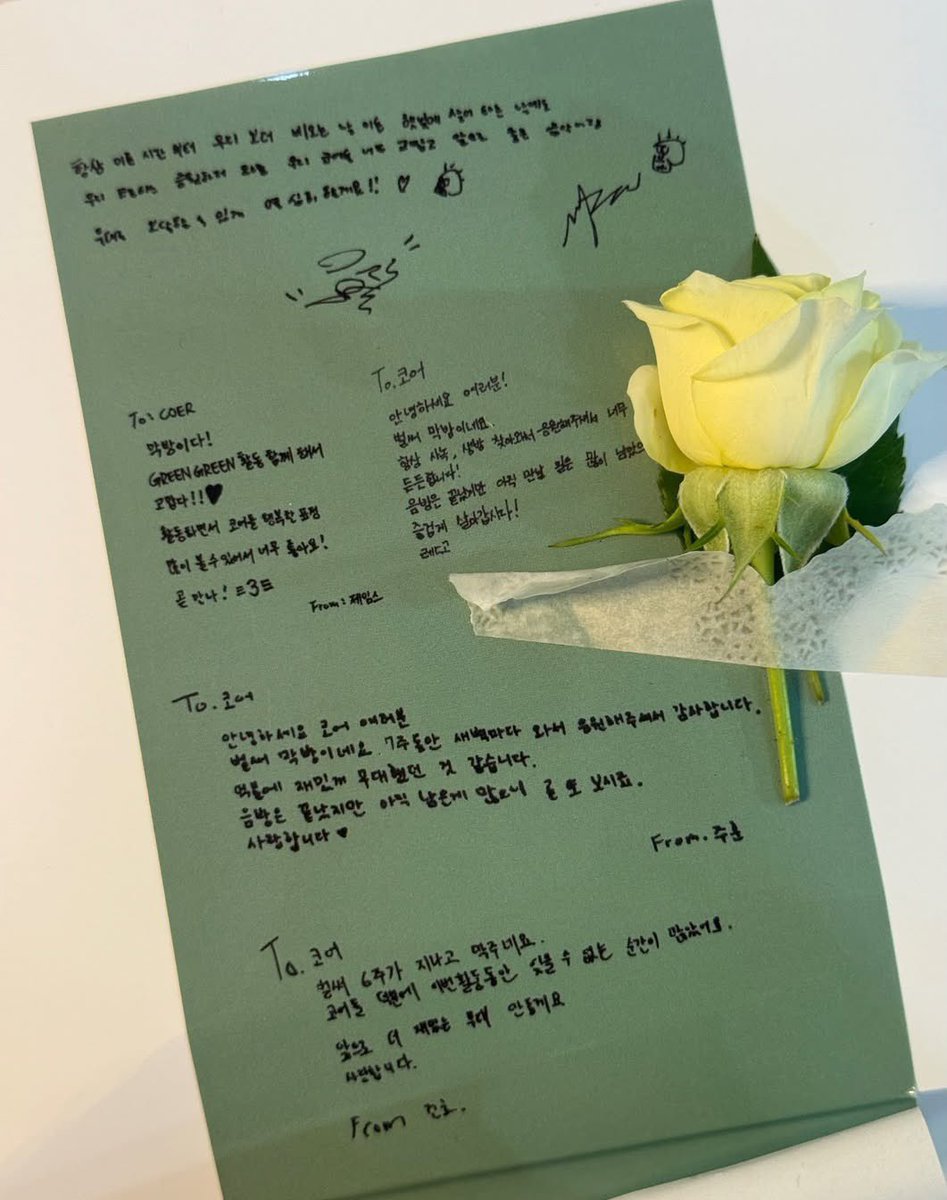 항상 이른 시간 부터 우리 보더 비오는 날 이든 햇빛에 살이 타는 날에도
우리 응원하러 와준 우리 코어들 너무 고맙고 앞으로 좋은 음악이랑
무대로 보답할 수 있게 열심히 할게요!! ♡
To: COER
막방이다!
GREEN GREEN 활동 함께 해줘서
고맙다!!♥
활동하면서 코어들 행복한 표정
많이 볼 수 있어서 너무 좋아요!
곧 만나! ミ3ミ
From: 제임스
To. 코어
안녕하세요 여러분!
벌써 막방이네요.
항상 사녹, 생방 찾아와서 응원해주셔서 너무
든든합니다!
음방은 끝났지만 아직 만날 일은 많이 남았으
즐겁게 살아갑시다!
To. 코어
안녕하세요 코어 여러분
벌써 막방이네요. 7주동안 새벽마다 와서 응원해주셔서 감사합니다.
덕분에 재밌게 무대했던 것 같습니다.
음방은 끝났지만 아직 남은게 많으니 곧 또 보시죠.
사랑합니다♥
From. 주훈
To. 코어
벌써 6주가 지나고 막주네요.
코어들 덕분에 이번활동동안 잊을 수 없는 순간이 많았어요.
앞으로 더 재밌는 무대 만들게요
사랑합니다.
From 건호.